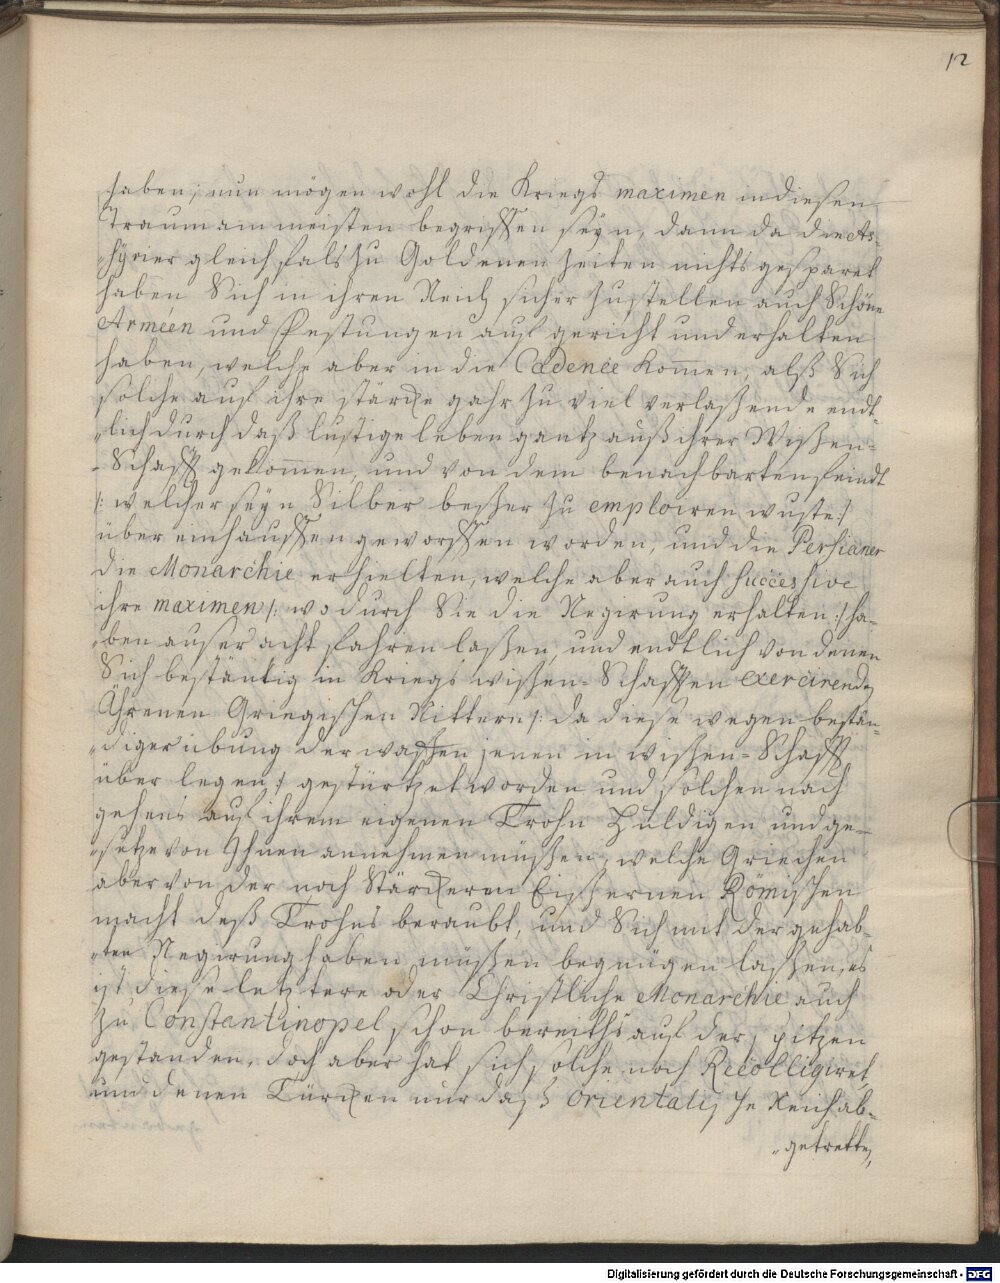 12
haben; nun mögen wohl die Kriegs maximen in diesen
Traum am meisten begriffen seÿn, dann da die As-
„sÿrier gleich fals zu Goldenen Zeiten nichts gesparet
haben Sich in ihren Reich sicher zustellen auch Schöne
Arméen und Festungen auf gericht und erhalten
haben, welche aber in die Cadence kom̄en, alß Sich
solche auf ihre stärcke gahr zu viel verlaßend endt-
„lich durch daß lustige leben gantz auß ihrer Wißen-
-Schafft gekom̄en, und von dem benachbarten feindt
/: welcher seÿn Silber beßer zu emploiren wuste :/
über einhauffen geworffen worden, und die Persianer
die Monarchie erhielten, welche aber auch successive
ihre maximen /: wodurch Sie die Regirung erhalten :/ ha-
„ben auser acht fahren laßen, und endtlich von denen
Sich beständig in Kriegs wißen-Schafften exercirend
Ährenen Griegischen Rittern /: da diese wegen bestän-
„diger übung der waffen jenen in wißen-Schafft
über legen :/ gestürtzet worden und solchen nach
gehens auf ihrem eigenen Trohn Huldigen und ge-
„setze von Ihnen annehmen müßen, welche Griechen
aber von der noch Stärckeren Eißernen Römischen
macht deß Trohns beraubt, und Sich mit der gehab-
„ten Regirung haben müßen begnügen laßen, es
ist diese letztere oder Christliche Monarchie auch
zu Constantinopel schon bereiths auf der spitzen
gestanden, doch aber hat sich solche noch Recolligiret
und denen Türcken nur daß Orientalische Reich ab-
„getretten,
Digitalisierung gefördert durch die Deutsche Forschungsgemeinschaft - DFG